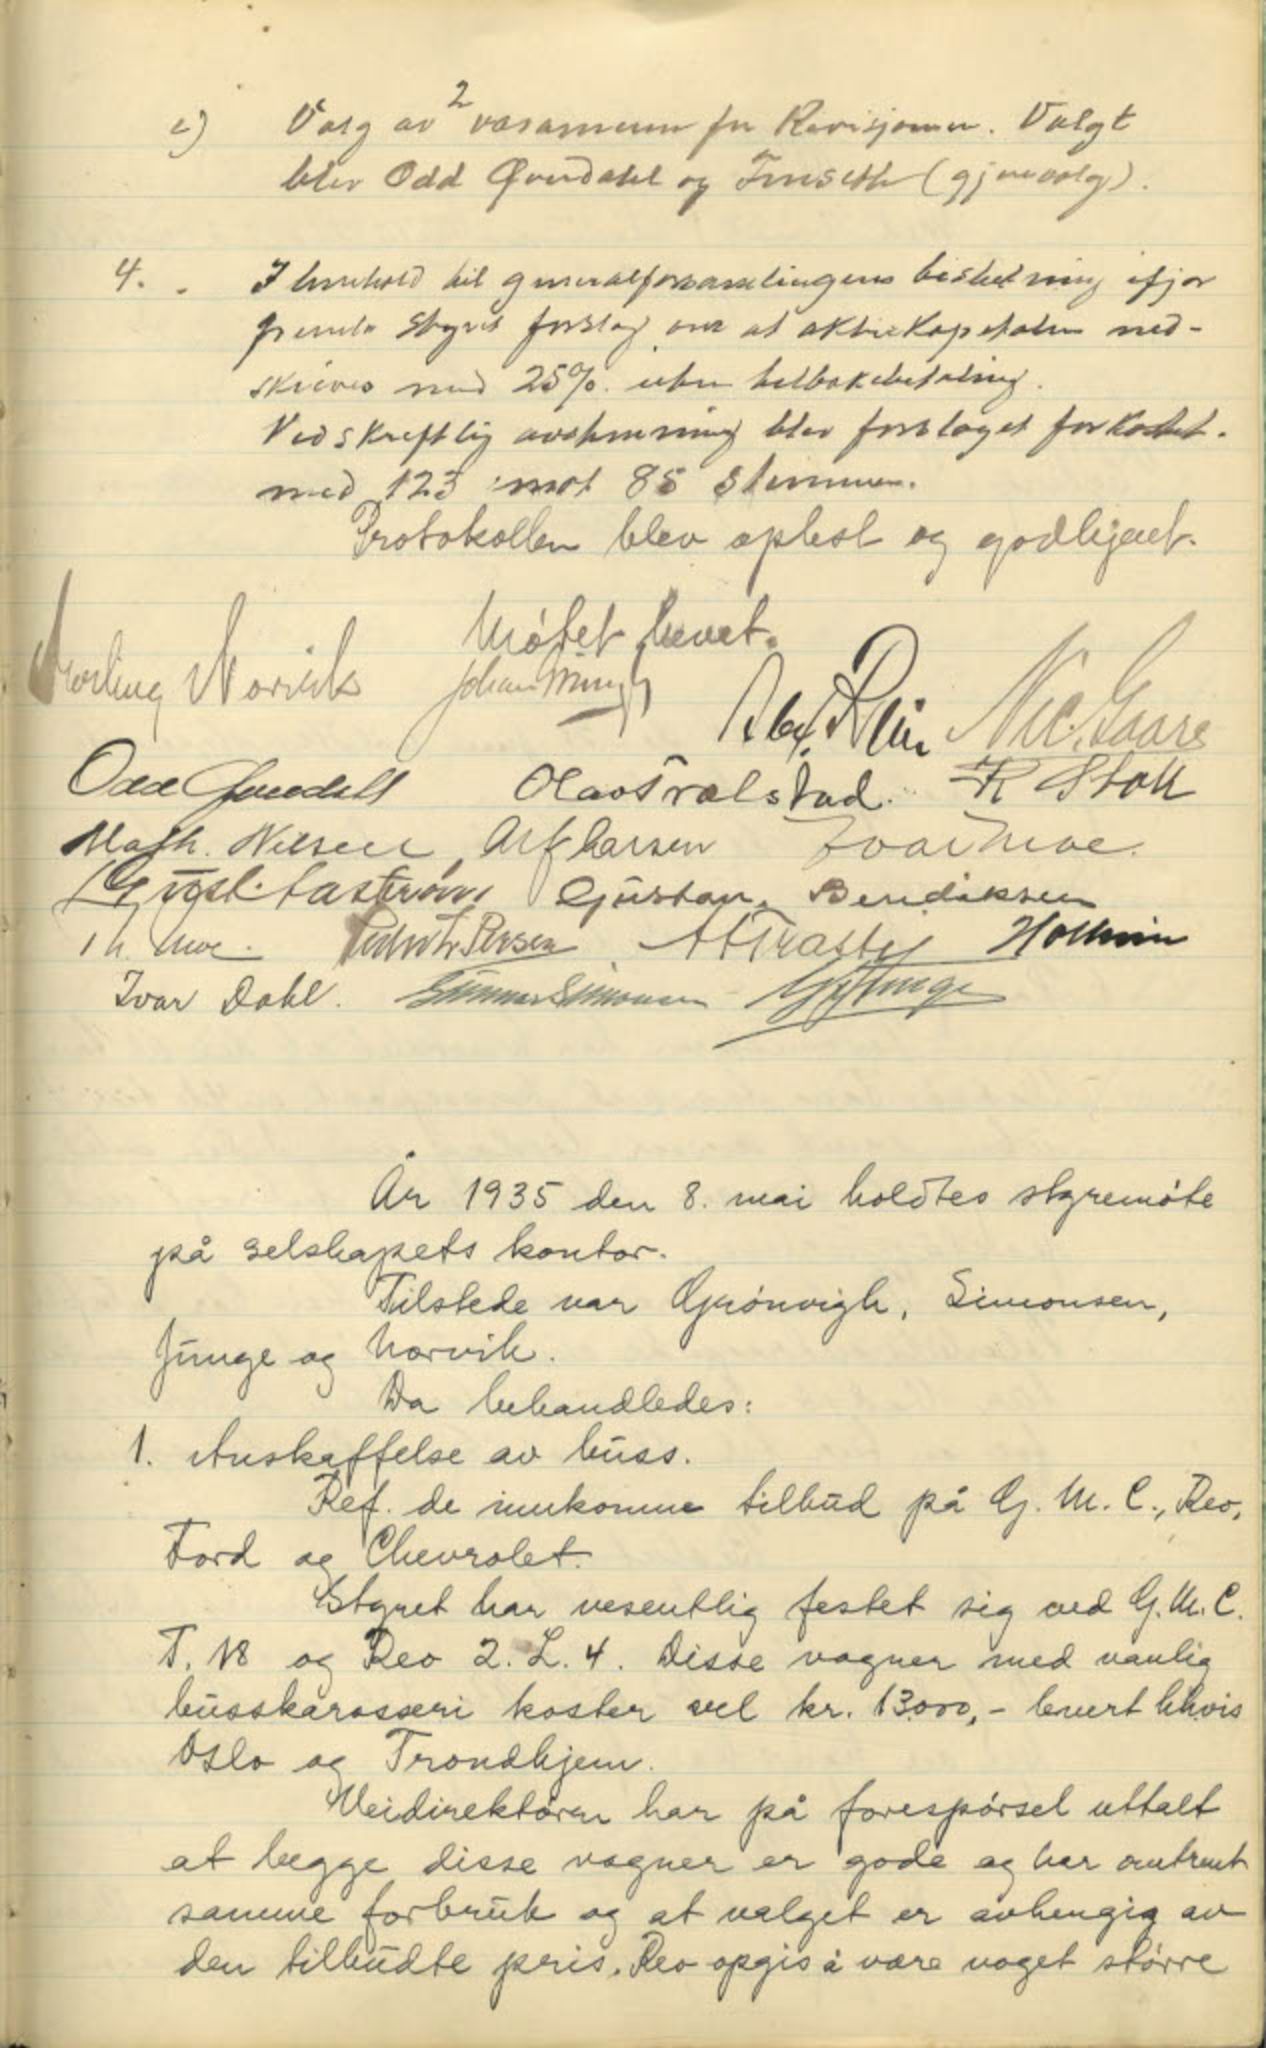 c) Valg av 2 varamenn for Revisjonen. Valgt
blev Odd Øverdahl og (gjenvalg).
4. I henhold til generalforsamlingens beslutning ifjor
styrets forslag om at aktiekapitalen ned-
skrives med 25% uten tilbakebetaling.
Ved skriftlig avstemning blev forslaget forkastet
med 123 mot 85 stemmer.
Protokollen blev oplest og godkjent.
Møtet hevet.
Norvik Johan
Alex. Rein Nic. Gaare
Odd Olav Trælstad. Stoll
Math. Nilsen Alf Larsen Ivar Moe.
Gustav Bendiksen
Th. Moe.
Ivar Dahl. Gunnar Simonsen
År 1935 den 8. mai holdtes styremöte
på selskapets kontor.
Tilstede var Grönvigh, Simonsen,
Junge og Norvik.
Da behandledes:
1. Anskaffelse av buss.
Ref. de innkomne tilbud på G. M. C., Reo,
Ford og Chevrolet.
Styret har vesentlig festet sig ved G. M. C.
T. 18 og Reo 2. L. 4. Disse vogner med vanlig
busskarosseri koster vel kr. 13000,- levert hhvis
Oslo og Trondhjem.
Veidirektören har på forespörsel uttalt
at begge disse vogner er gode og har omtrent
samme forbruk og at valget er avhengig av
den tilbudte pris. Reo opgis å være noget större